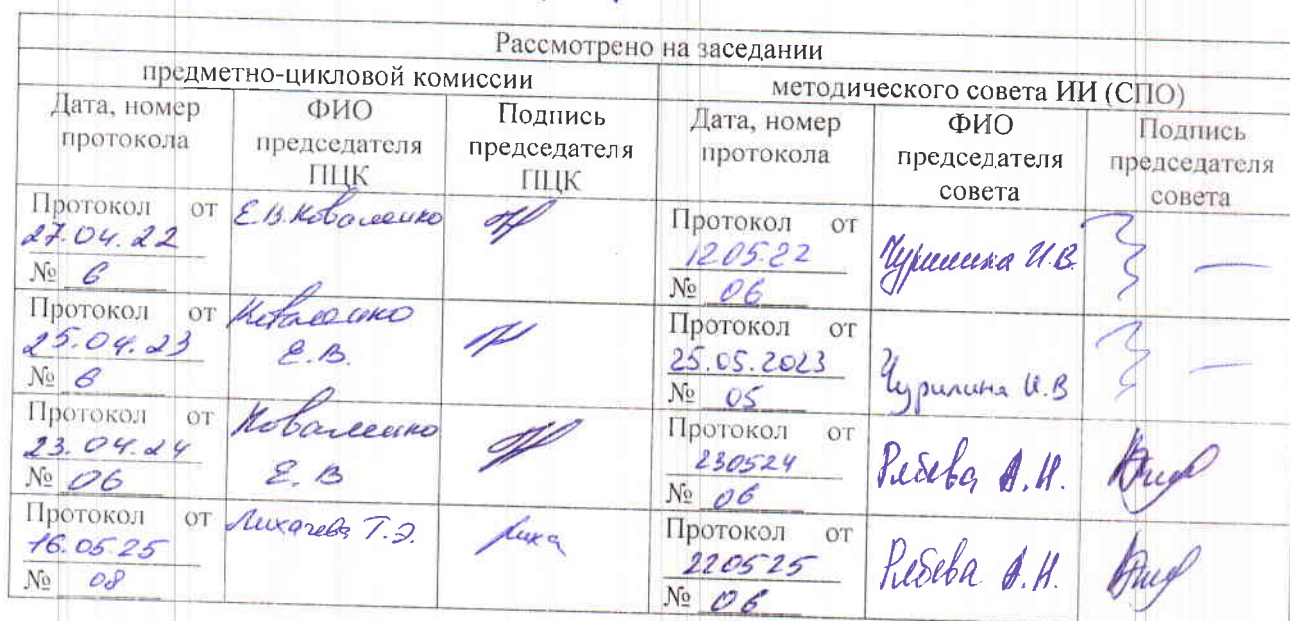 Рассмотрено на заседании
предметно-цикловой комиссии
методического совета ИИ (СПО)
Дата, номер протокола
ФИО председателя ПЦК
Подпись председателя ПЦК
Дата, номер протокола
ФИО председателя совета
Подпись председателя совета
Протокол от
27.04.22
№ 6
Е.В. Коваленко
Протокол от
12.05.22
№ 06
Чурилина И.В.
Протокол от
25.04.23
№ 6
Коваленко
Е.В.
Протокол от
25.05.2023
№ 05
Чурилина И.В
Протокол от
23.04.24
№ 06
Коваленко
Е.В
Протокол от
230524
№ 06
А.Н.
Протокол от
16.05.25
№ 08
Лихачева Т.Э.
Лиха
Протокол от
220525
№ 06
А.Н.